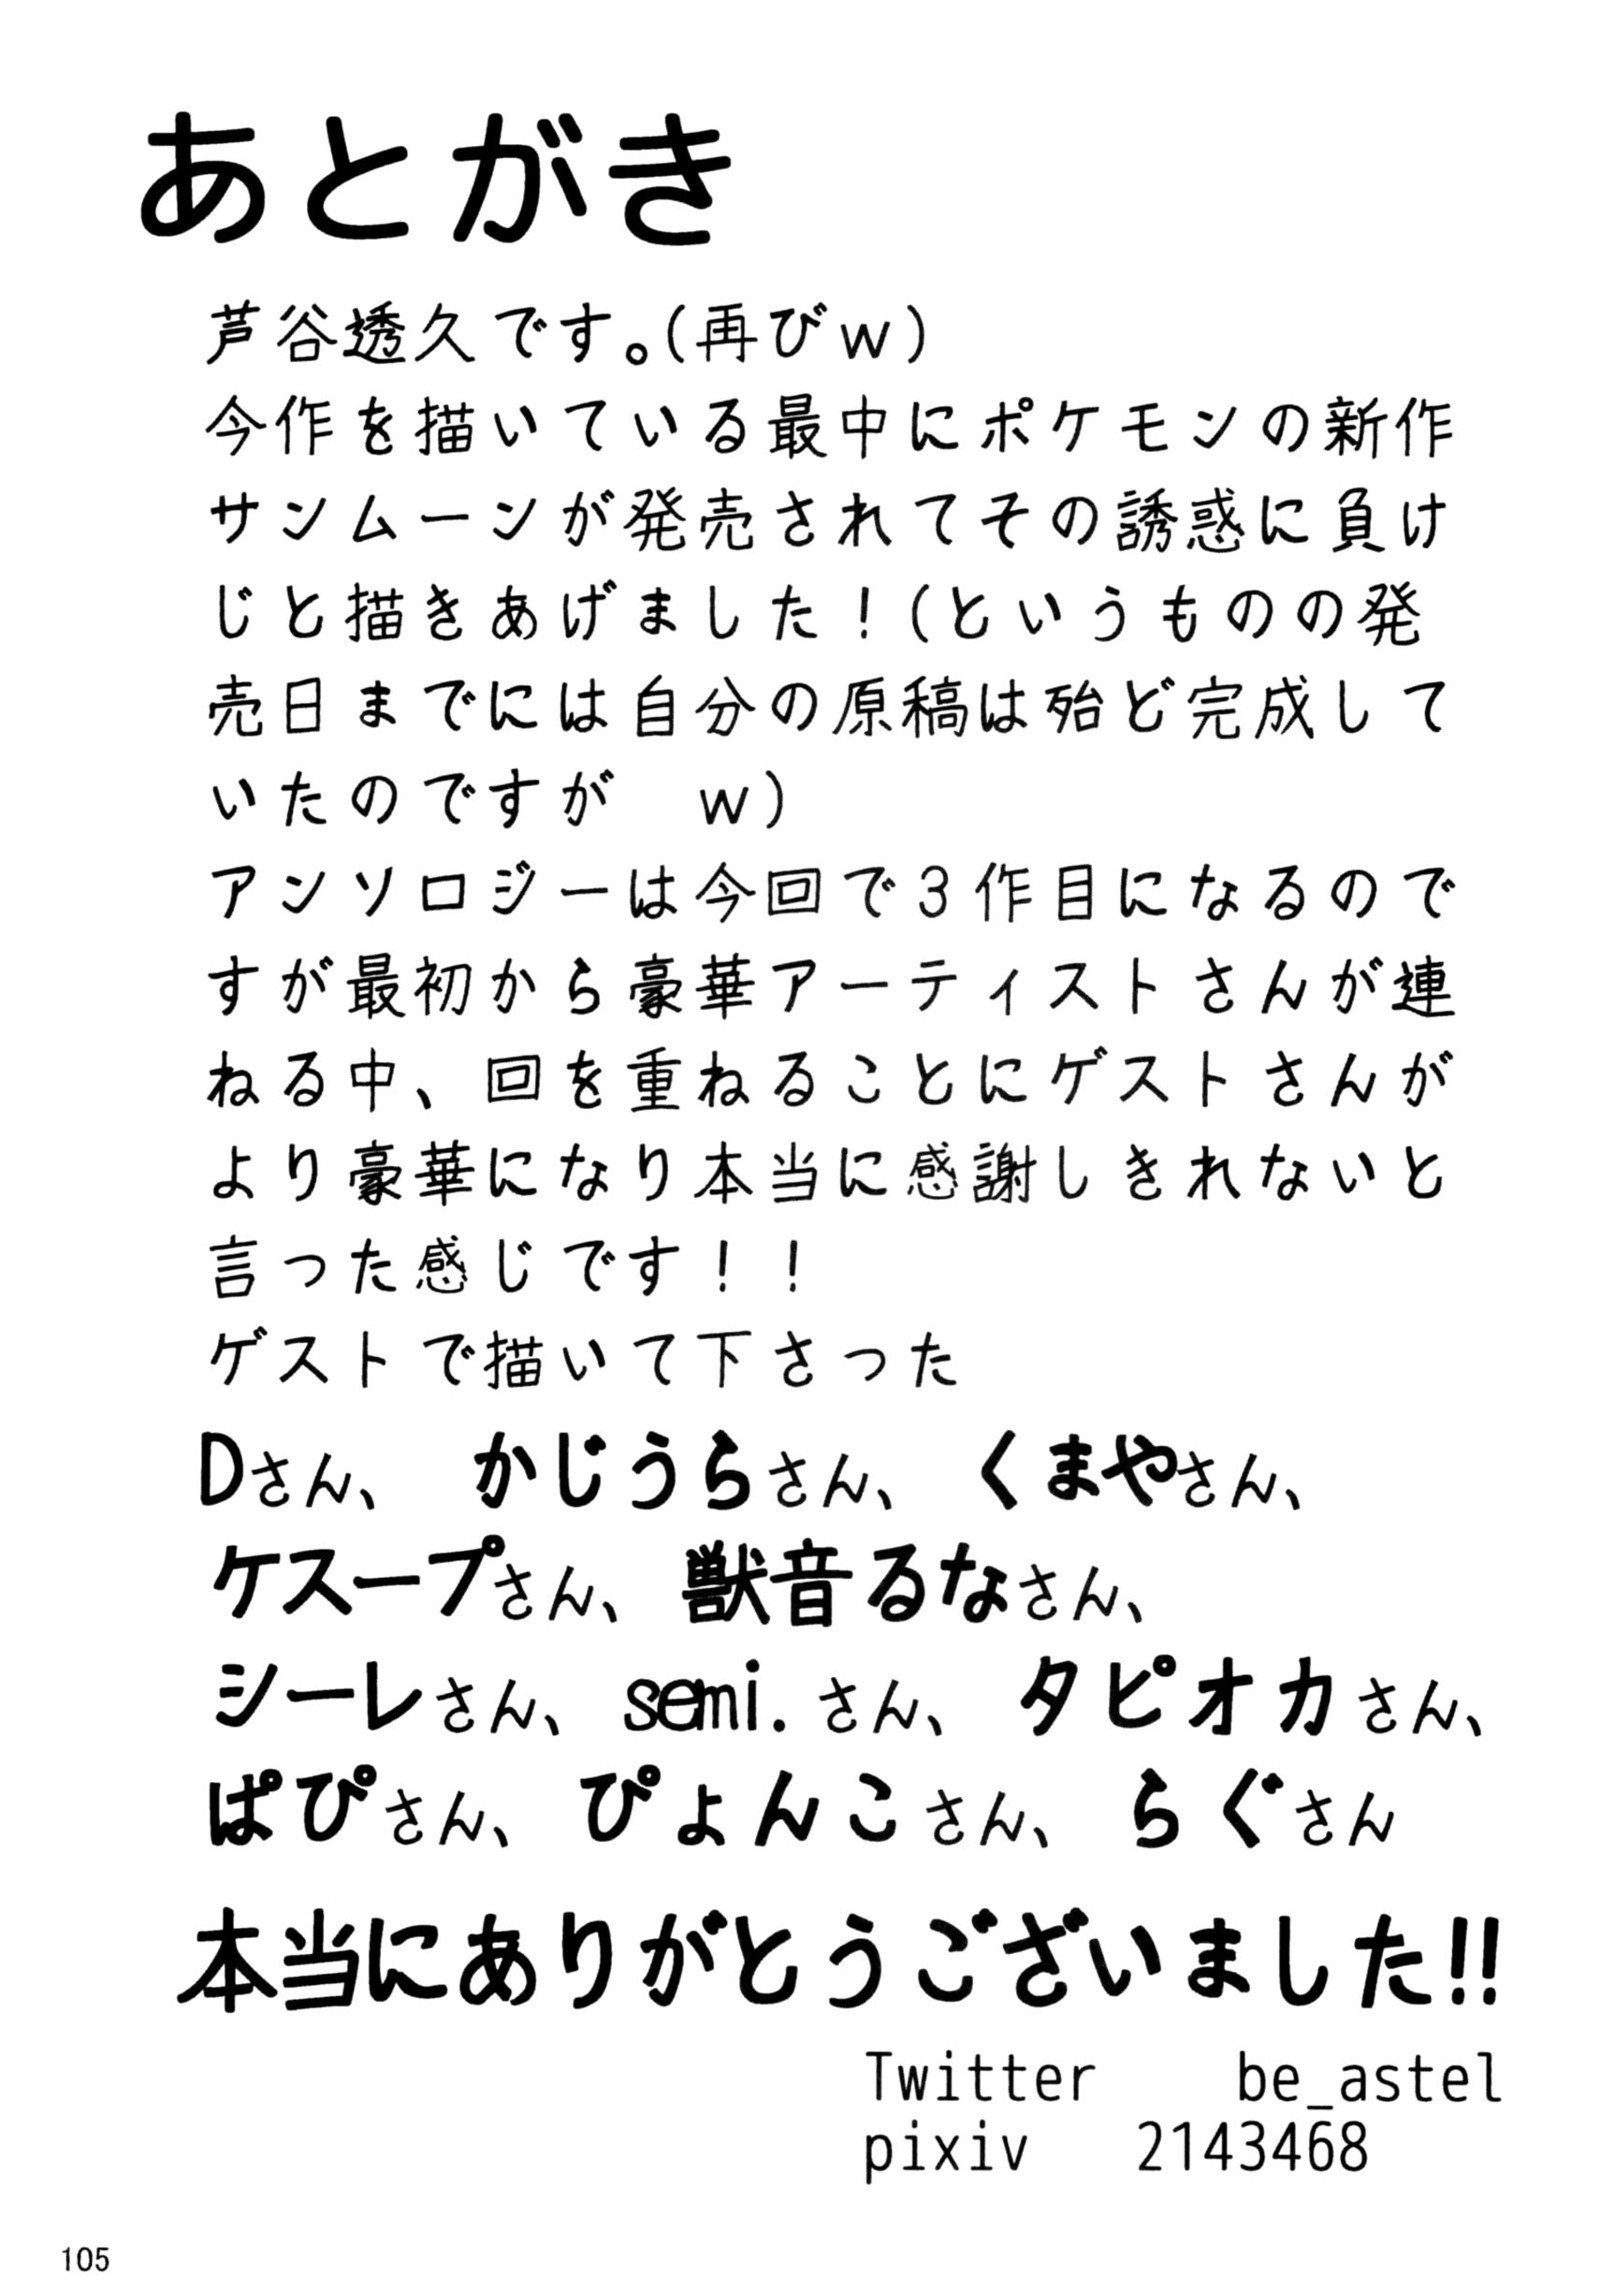 あとがき
芦谷透久です。(再びｗ)
今作を描いている最中にポケモンの新作
サンムーンが発売されてその誘惑に負け
じと描きあげました！(というものの発
売日までには自分の原稿は殆ど完成して
いたのですが　ｗ)
アンソロジーは今回で３作目になるので
すが最初から豪華アーティストさんが連
ねる中、回を重ねることにゲストさんが
より豪華になり本当に感謝しきれないと
言った感じです！！
ゲストで描いて下さった
Dさん、　かじうらさん、　くまやさん、
ケスープさん、獣音るなさん、
シーレさん、semi.さん、タピオカさん、
ぱぴさん、ぴょんこさん、らぐさん
本当にありがとうございました!!
Twitter　be_astel
pixiv　2143468
105